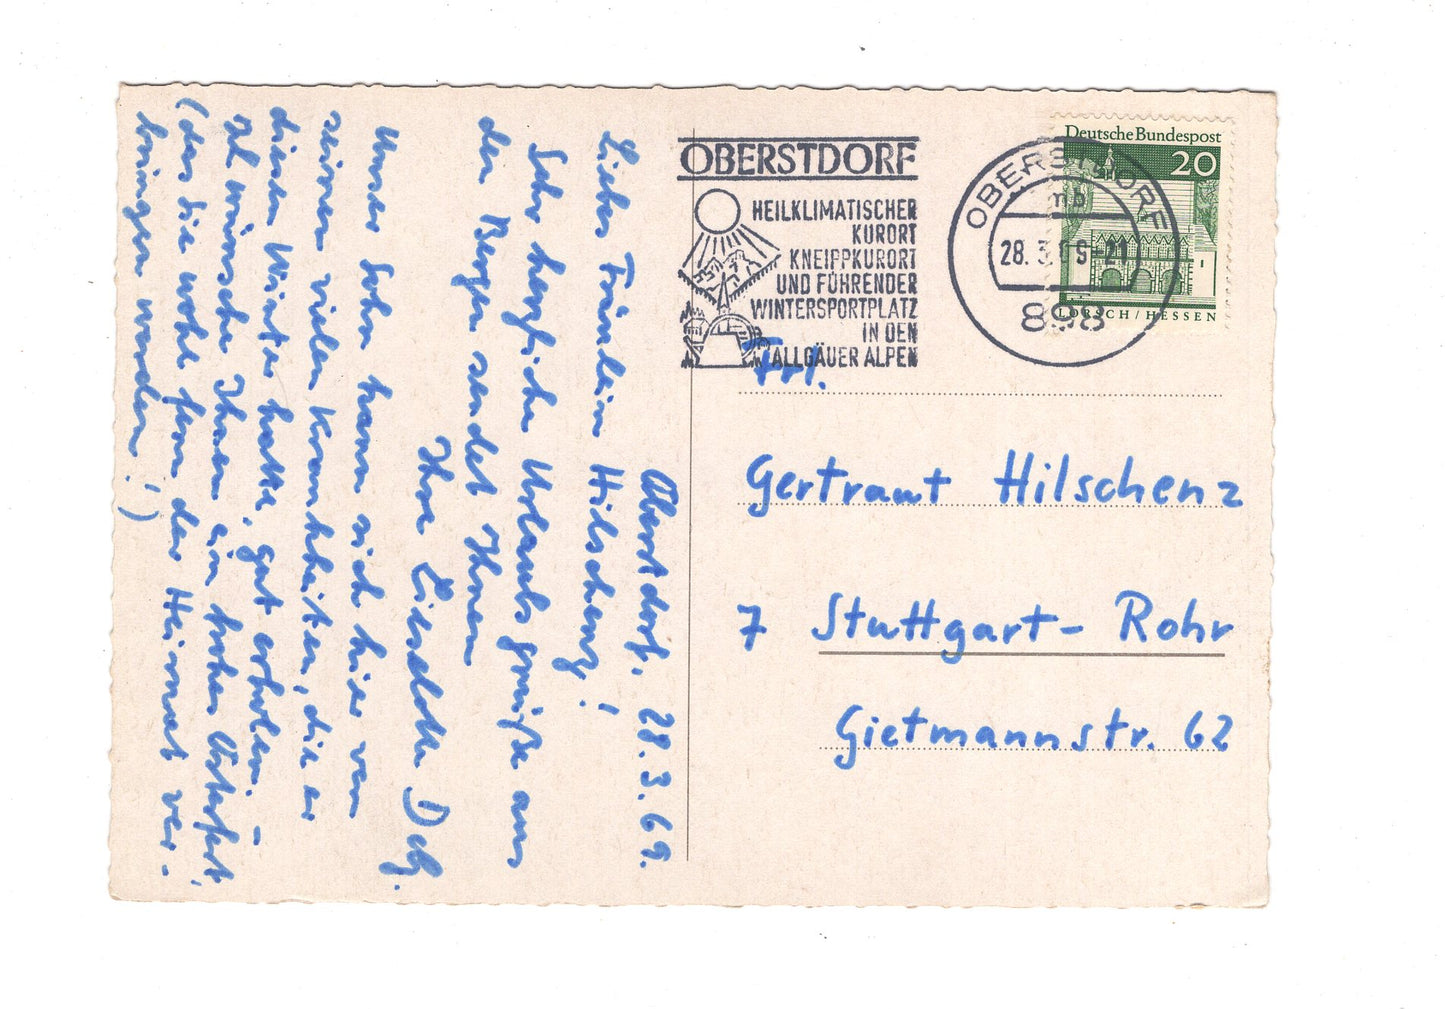 Oberstdorf, 28.3.69.
Liebes Fräulein Hilschenz!
Sehr herzliche Urlaubsgrüße aus
den Bergen sendet Ihnen
Ihre Liselotte
Unser Sohn kann sich hier von
seinen vielen Krankheiten, die er
diesen Winter hatte, gut erholen. –
Ich wünsche Ihnen ein frohes Osterfest,
(das Sie wohl fern der Heimat ver-
bringen werden!)
OBERSTDORF
HEILKLIMATISCHER
KURORT
KNEIPPKURORT
UND FÜHRENDER
WINTERSPORTPLATZ
IN DEN
ALLGÄUER ALPEN
OBERSTDORF
mb
28. 3. 69-21
898
Deutsche Bundespost
20
LORSCH / HESSEN
Frl.
Gertraut Hilschenz
7 Stuttgart-Rohr
Gietmannstr. 62